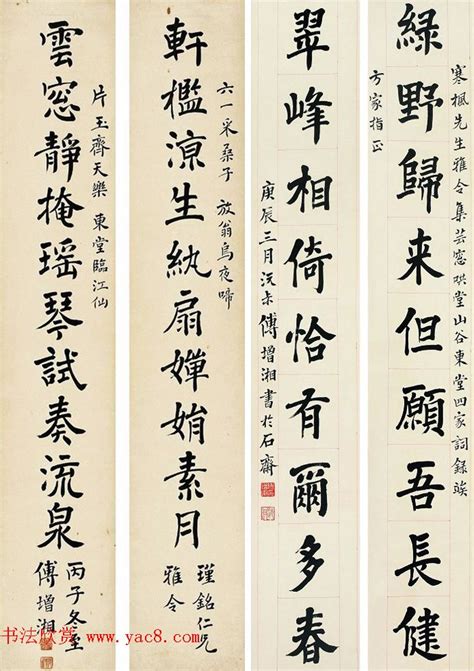 寒楓先生雅令集芸窓烘堂山谷東堂四家詞錄竢
綠野歸来但願吾長健
方家指正
翠峰相倚恰有爾多春
庚辰三月沅尗傅增湘書於石齋
六一采桑子 放翁烏夜啼
軒檻涼生紈扇嬋娟素月
瑾銘仁兄
雅令
片玉齊天樂 東堂臨江仙
雲窓靜掩瑤琴試奏流泉
丙子冬至
傅增湘
书法欣赏 www.yac8.com